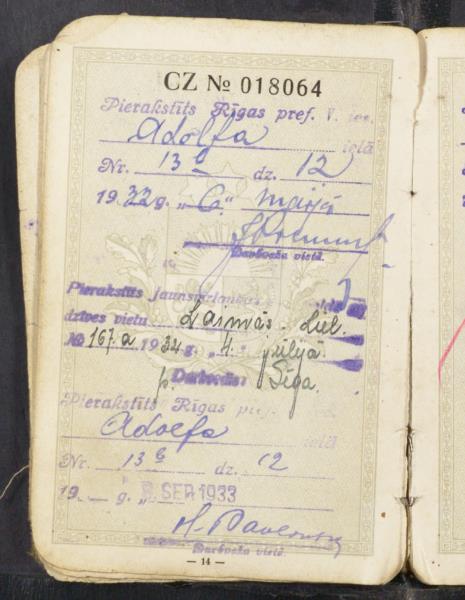 CZ № 018064
Pierakstīts Rīgas pref. V. iec.
Adolfa ielā
Nr. 13 dz. 12
19 g. „6.“ maijā
Darbveža vietā.
Pierakstīts
dzīves vietu
№ 167a 19 g. „4. jūlijā
p. Darbvedis:
Pierakstīts Rīgas
Adolfa ielā
Nr. 13 dz. 12
19 g. „ SEP. 1933
Darbveža vietā.
— 14 —